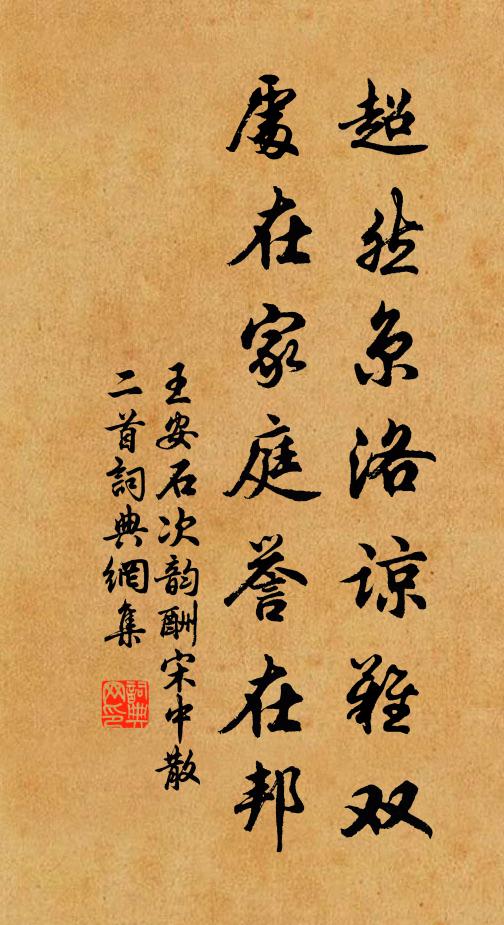 超然京洛谅难双
处在家庭誉在邦
王安石次韵酬宋中散
二首詞典網集
詞典网印